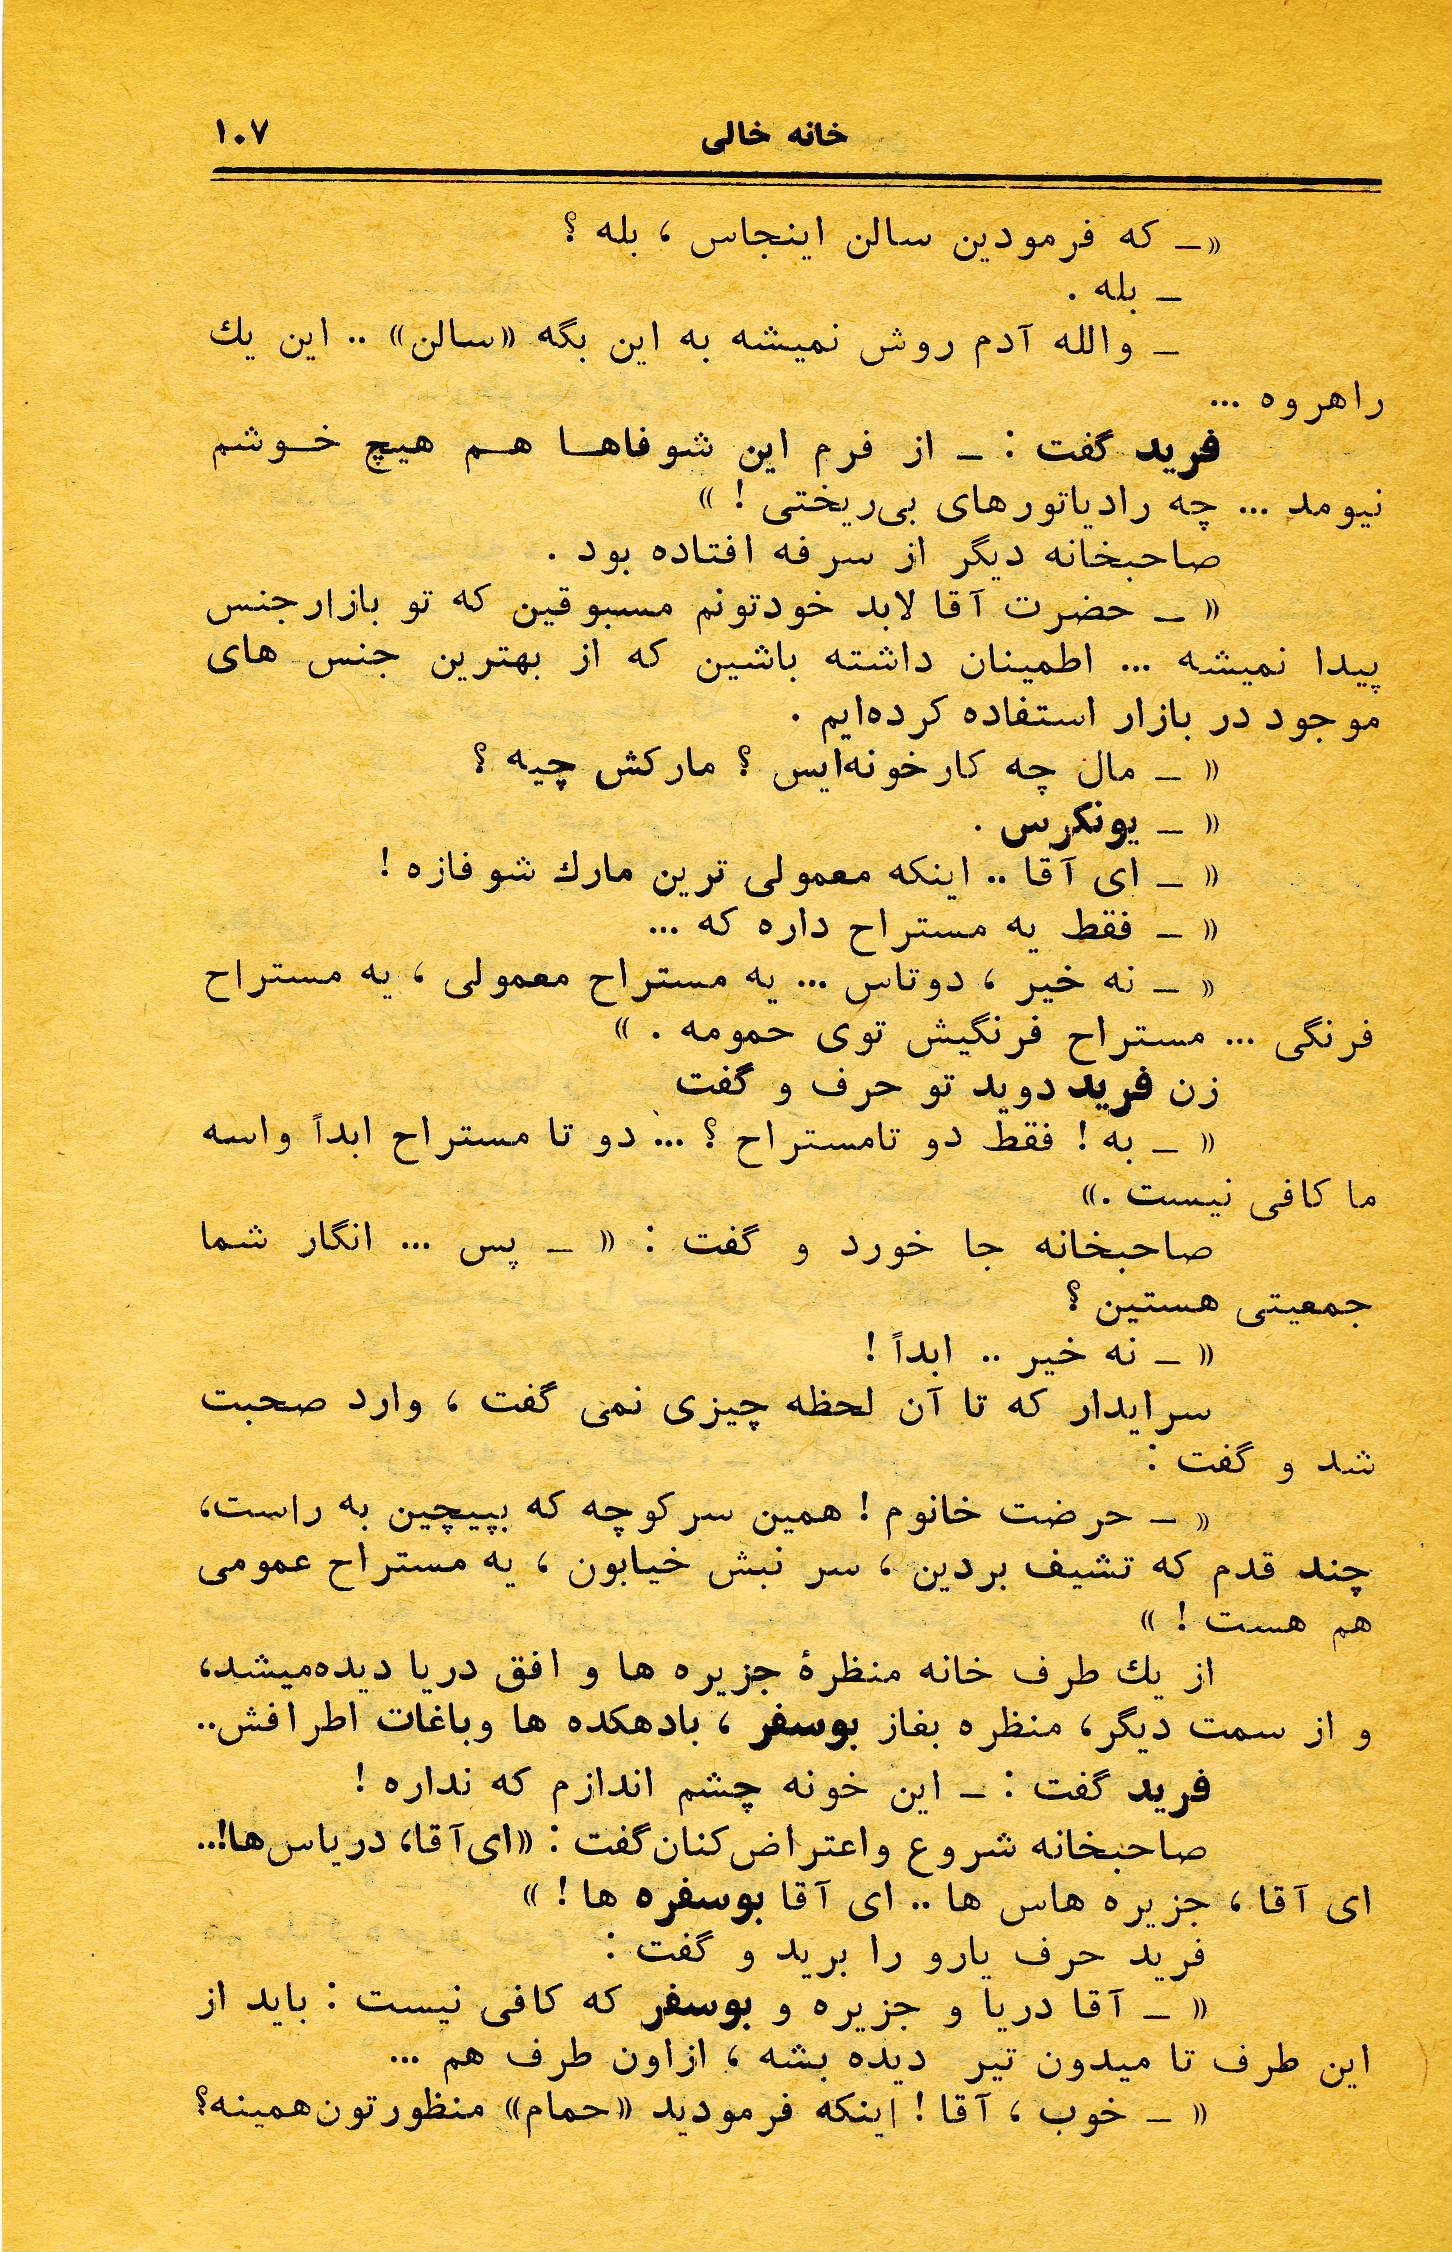 خانه خالی ۱۰۷
«ـ که فرمودین سالن اینجاس ، بله ؟
ـ بله .
ـ والله آدم روش نمیشه به این بگه «سالن» .. این یك
راهروه ...
فرید گفت : ـ از فرم این شوفاها هم هیچ خوشم
نیومد ... چه رادیاتورهای بی‌ریختی ! »
صاحبخانه دیگر از سرفه افتاده بود .
« ـ حضرت آقا لابد خودتونم مسبوقین که تو بازارجنس
پیدا نمیشه ... اطمینان داشته باشین که از بهترین جنس های
موجود در بازار استفاده کرده‌ایم .
« ـ مال چه کارخونه‌ایس ؟ مارکش چیه ؟
« ـ یونکرس .
« ـ ای آقا .. اینکه معمولی ترین مارك شوفازه !
« ـ فقط یه مستراح داره که ...
« ـ نه خیر ، دوتاس ... یه مستراح معمولی ، یه مستراح
فرنگی ... مستراح فرنگیش توی حمومه . »
زن فرید دوید تو حرف و گفت
« ـ به ! فقط دو تامستراح ؟ ... دو تا مستراح ابداً واسه
ما کافی نیست .»
صاحبخانه جا خورد و گفت : « ـ پس ... انگار شما
جمعیتی هستین ؟
« ـ نه خیر .. ابداً !
سرایدار که تا آن لحظه چیزی نمی گفت ، وارد صحبت
شد و گفت :
« ـ حرضت خانوم ! همین سرکوچه که بپیچین به راست،
چند قدم که تشیف بردین ، سر نبش خیابون ، یه مستراح عمومی
هم هست ! »
از یك طرف خانه منظرهٔ جزیره ها و افق دریا دیده‌میشد،
و از سمت دیگر، منظره بغاز بوسفر ، بادهکده ها وباغات اطرافش..
فرید گفت : ـ این خونه چشم اندازم که نداره !
صاحبخانه شروع واعتراض‌کنان‌گفت : «ای‌آقا، دریاس‌ها!..
ای آقا ، جزیره هاس ها .. ای آقا بوسفره ها ! »
فرید حرف یارو را برید و گفت :
« ـ آقا دریا و جزیره و بوسفر که کافی نیست : باید از
این طرف تا میدون تیر دیده بشه ، ازاون طرف هم ...
« ـ خوب ، آقا ! اینکه فرمودید «حمام» منظورتون‌همینه؟